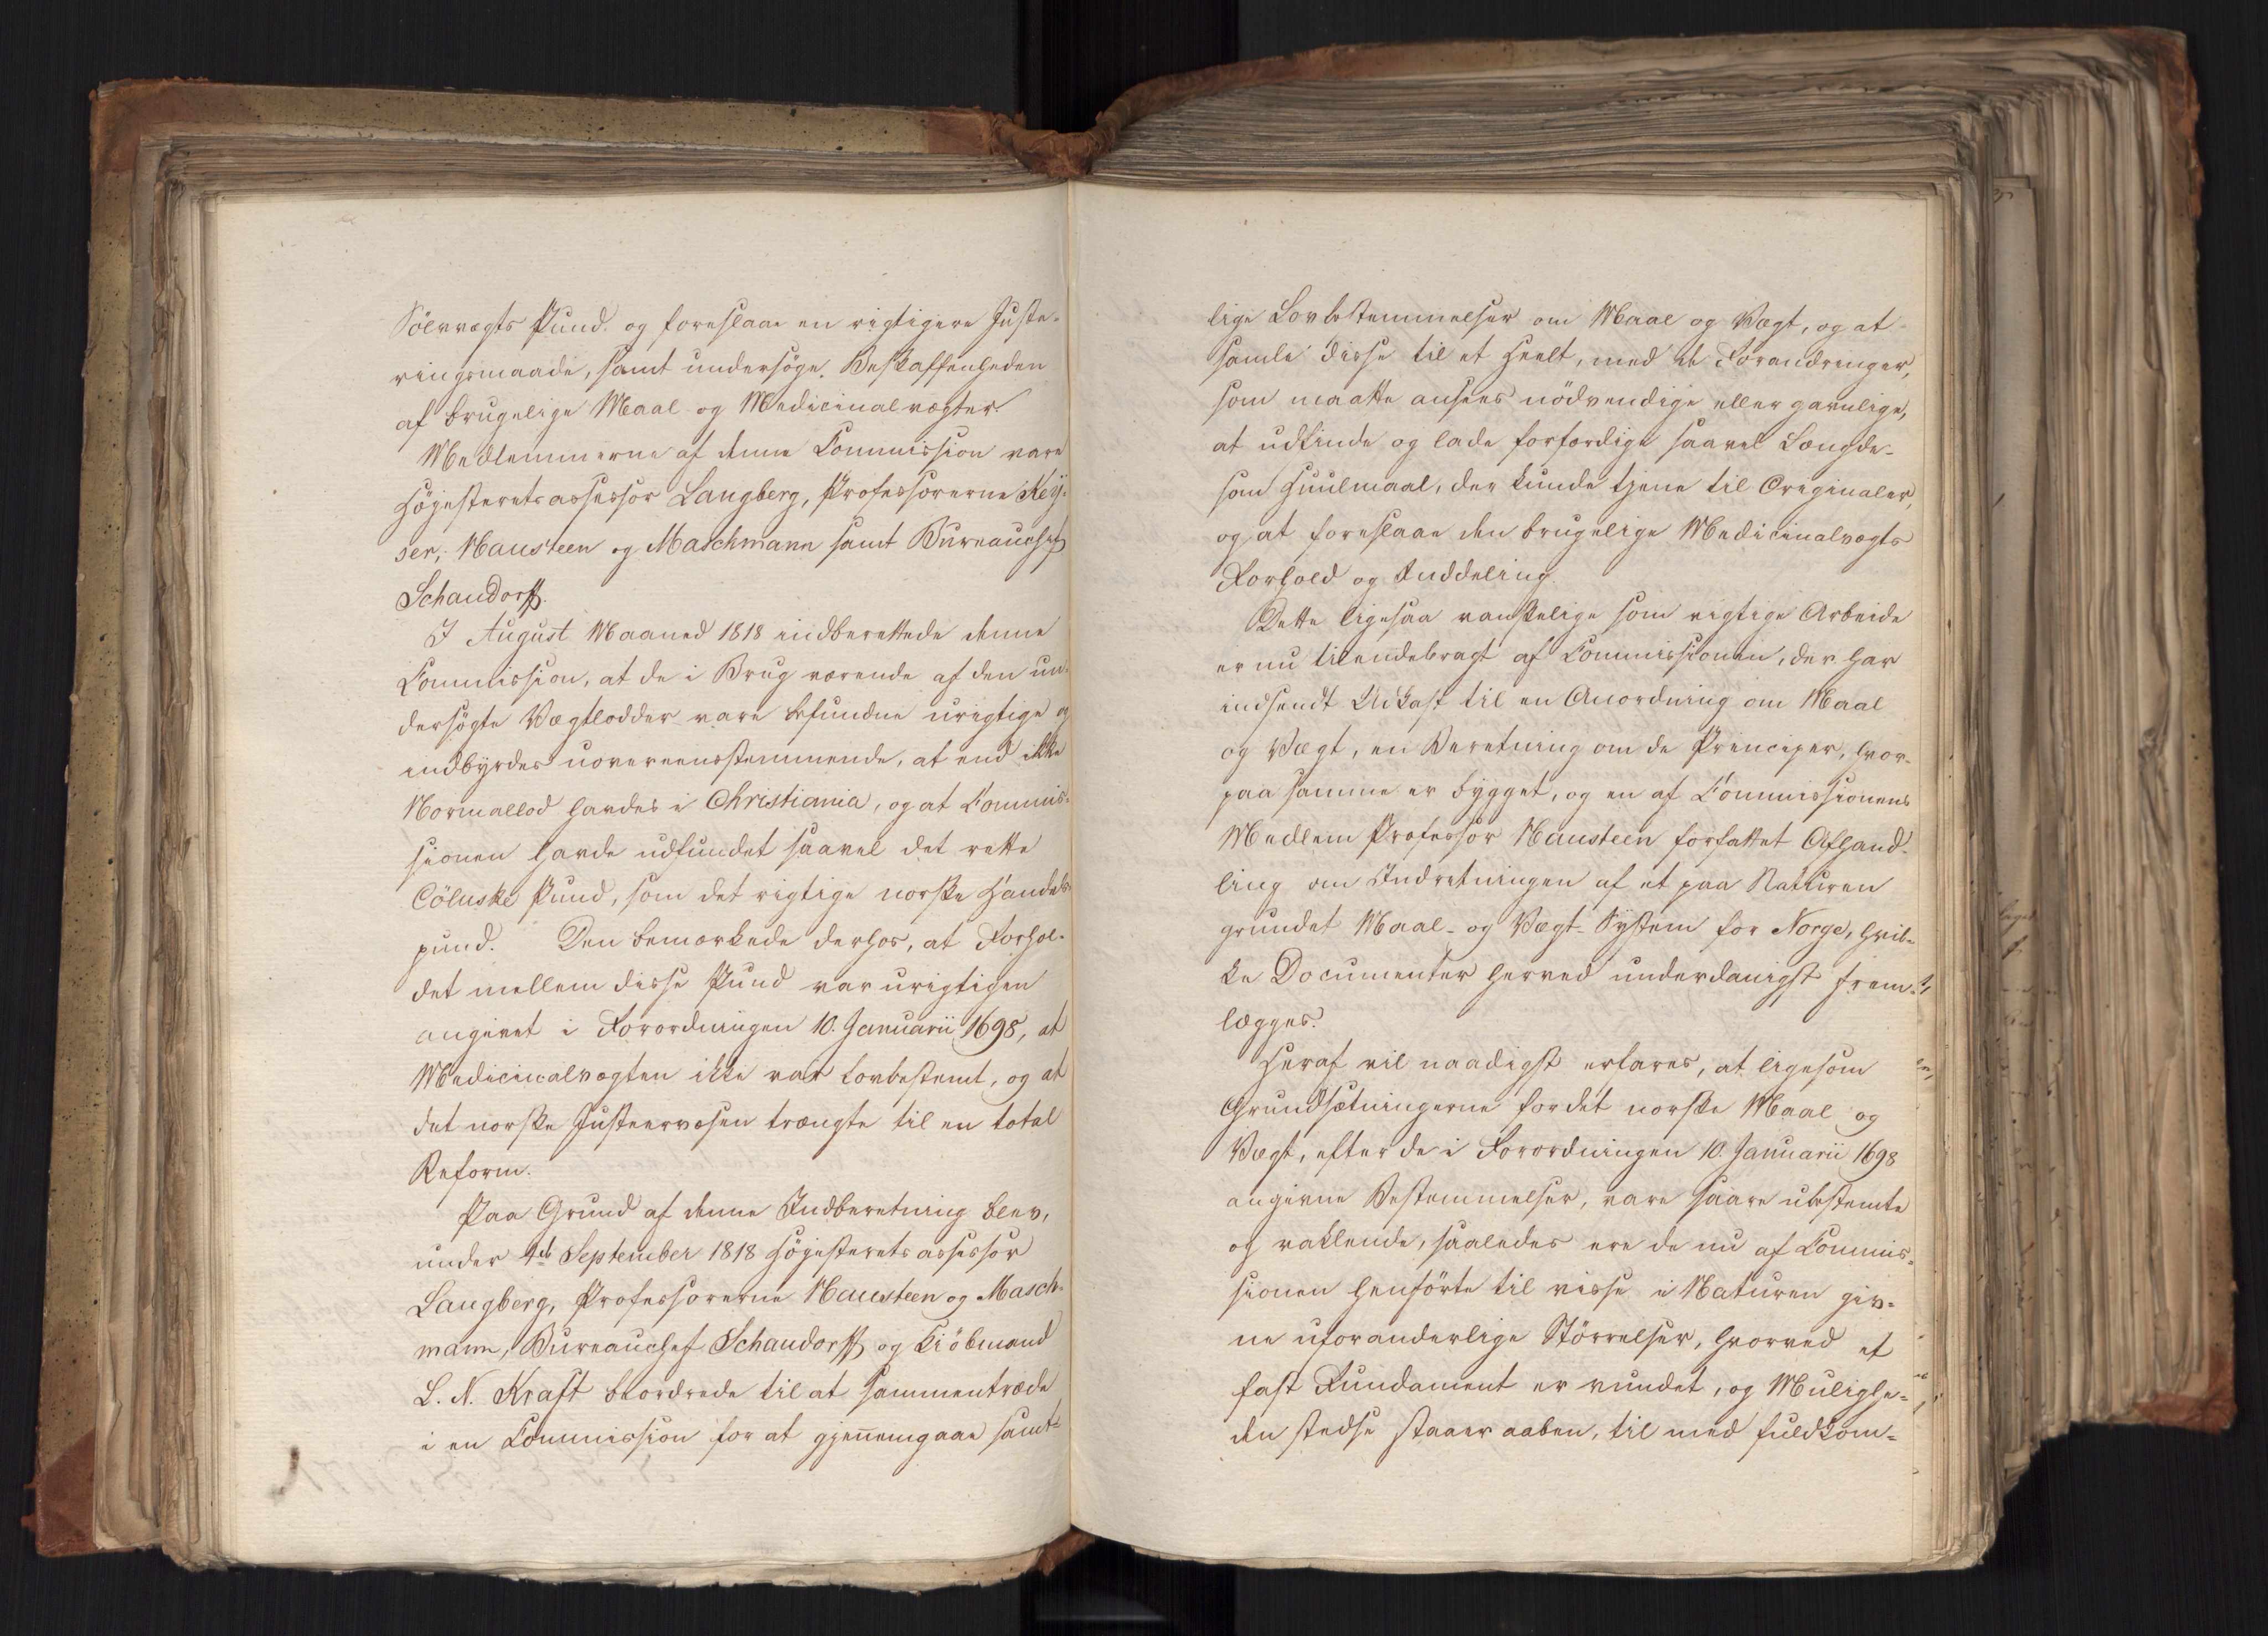 Sölvvægts Pund og foreslaae en rigtigere Juste-
ringsmaade, samt undersöge Beskaffenheden
af brugelige Maal og Medicinalvægter.
Medlemmerne af denne Commission vare
Höjesteretsassessor Langberg, Professorerne Key-
ser, Hansteen og Maschmann samt Bureauchef
Schandorff.
I August Maaned 1818 indberettede denne
Commission, at de i Brug værende af den un-
dersögte Vægtlodder vare befundne urigtige og
indbyrdes uovereensstemmende, at end ikke
Normallod havdes i Christiania, og at Commis-
sionen havde udfundet saavel det rette
Cölnske Pund, som det rigtige norske Handels-
pund. Den bemærkede derhos, at Forhol-
det mellem disse Pund var urigtigen
angivet i Forordningen 10. Januarii 1698, at
Medicinalvægten ikke var lovbestemt, og at
det norske Justeervæsen trængte til en total
Reform.
Paa Grund af denne Indberetning blev,
under September 1818 Höjesteretsassessor
Langberg, Professorerne Hansteen og Masch-
mann, Bureauchef Schandorff og Kiöbmand
L. N. Kraft beordrede til at sammentræde
i en Commission for at gjennemgaae samt-
lige Lovbestemmelser om Maal og Vægt, og at
samle disse til et Heelt, med de Forandringer,
som maatte ansees nödvendige eller gavnlige,
at udfinde og lade forfærdige saavel Længde-
som Huulmaal, der kunde tjene til Originaler,
og at foreslaae den brugelige Medicinalvægts
Forhold og Inddeling.
Dette ligesaa vanskelige som vigtige Arbeide
er nu tilendebragt af Commissionen, der har
indsendt Udkast til en Anordning om Maal
og Vægt, en Beretning om de Principer, hvor-
paa samme er bygget, og en af Commissionens
Medlem Professor Hansteen forfattet Afhand-
ling om Indretningen af et paa Naturen
grundet Maal- og Vægt-System for Norge, hvil-
ke Documenter herved underdanigst frem-
lægges.
Heraf vil naadigst erfares, at ligesom
Grundsætningerne for det norske Maal og
Vægt, efter de i Forordningen 10. Januarii 1698
angivne Bestemmelser, vare saare ubestemte
og vaklende, saaledes ere de nu af Commis-
sionen henförte til visse i Naturen giv-
ne uforanderlige Störrelser, hvorved et
fast Fundament er vundet, og Mulighe-
den stedse staaer aaben, til med fuldkom-